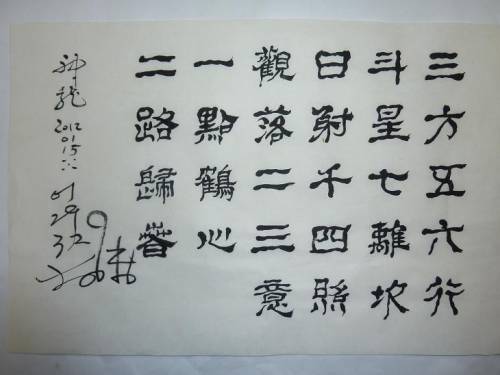 三方五六行
斗星七離坎
日射千四縣
觀落二三意
一點鶴心
二路歸
神龍 2012 01.15